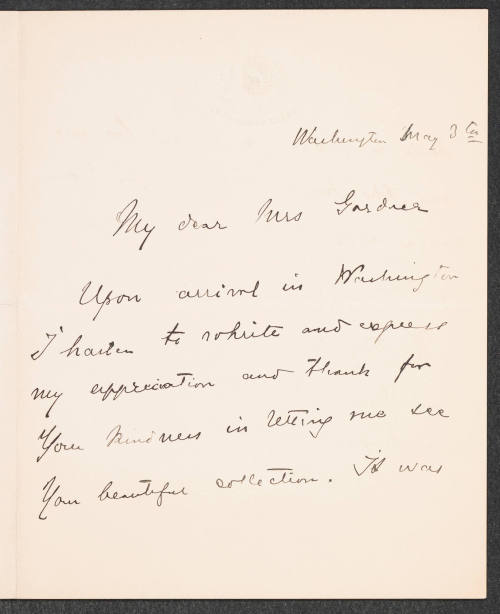 Washington May 3th
My dear Mrs Gardner
Upon arrival in Washington
I hasten to rohrite and express
my appreciation and thank for
Your kindness in letting me see
Your beautiful collection. It was